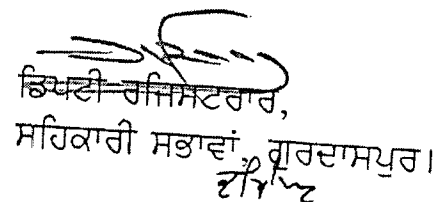 ਡਿਪਟੀ ਰਜਿਸਟਰਾਰ,
ਸਹਿਕਾਰੀ ਸਭਾਵਾਂ, ਗੁਰਦਾਸਪੁਰ।